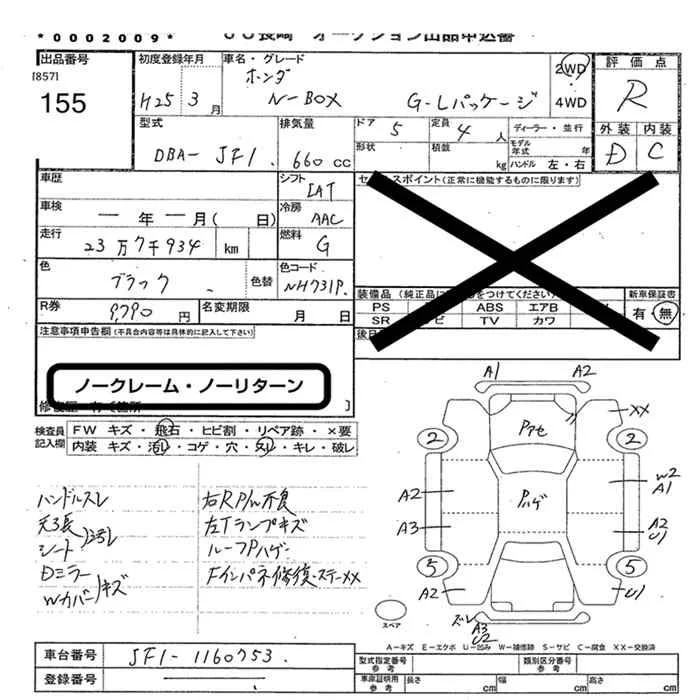 *0002009*
JU長崎 オークション出品申込書
出品番号
[857]
155
初度登録年月
H25 3月
車名・グレード
ホンダ
N-BOX G-Lパッケージ
2WD
4WD
評価点
R
外装 内装
D C
型式
DBA-JF1
排気量
660cc
ドア
5
定員
4人
ディーラー・並行
形状
積数
kg
モデル年式 年
ハンドル 左・右
車歴
シフト
IAT
セールスポイント(正常に機能するものに限ります)
車検
一年一月( 日)
冷房
AAC
走行
23万7千934km
燃料
G
色
ブラック
色替
色コード
NH731P
装備品
新車保証書
PS ABS エアB
SR TV カワ
有・無
R券
9,790円
名変期限
月 日
注意事項申告欄(不具合内容等は具体的に記入して下さい)
ノークレーム・ノーリターン
検査員記入欄
FW キズ・飛石・ヒビ割・リペア跡・×要
内装 キズ・汚レ・コゲ・穴・スレ・キレ・破レ
ハンドルスレ
天3長
シート 汚レ
Dミラー
Wカバー キズ
右RP/W不良
左Tランプキズ
ルーフPハゲ
Fインパネ修復・ステーXX
A1 A2
XX
Pアセ
2 2
A2
Pハゲ
W2
A1
A3
A2
U1
5 5
A2
U1
スペア
ズレ
A3
U2
A-キズ E-エクボ U-凹み W-補修跡 S-サビ C-腐食 XX-交換済
車台番号
JF1-1160753
登録番号
型式指定番号
参考
類別区分番号
参考
車庫証明用
参考
長さ cm
幅 cm
高さ cm